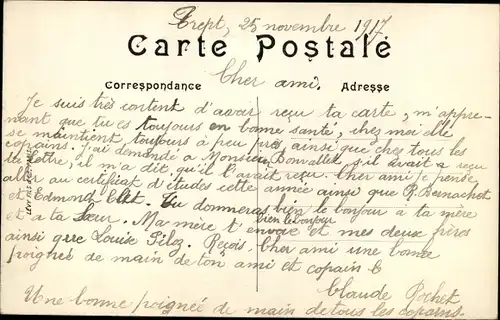 Trept, 25 novembre 1917
Carte Postale
Cher ami.
Correspondance Adresse
Je suis très content d'avoir reçu ta carte, m'appre-
nant que tu es toujours en bonne santé, chez moi elle
se maintient toujours à peu près, ainsi que chez tous les
copains. J'ai demandé à Monsieur Bonvallet s'il avait reçu
ta lettre, il m'a dit qu'il l'avait reçu. Cher ami je pense
aller au certificat d'études cette année ainsi que R. Bernachot
et Edmond Tu donneras bien le bonjour à ta mère
bien le bonjour
et à ta Sœur. Ma mère t'envoie et mes deux frères
ainsi que Louise Reçois Cher ami une bonne
poignée de main de ton ami et copain
Claude Rochet
Une bonne poignée de main de tous les copains